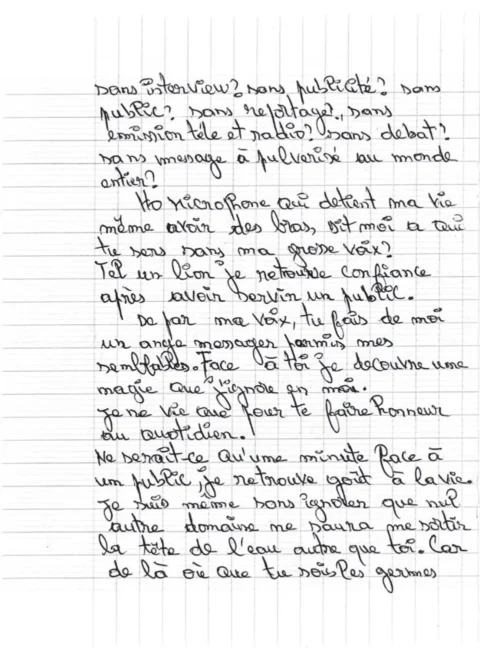 sans interview? sans publicité? sans
public? sans reportage?, sans
émission télé et radio? sans debat?
sans message à pulverisé au monde
entier?
Ho Microphone qui détient ma vie
même avoir des bras, dit moi a qui
tu sers sans ma grosse voix?
Tel un lion je retrouve confiance
après avoir servir un public.
De par ma voix, tu fais de moi
un ange messager parmis mes
semblables. Face à toi je decouvre une
magie que j'ignore en moi.
Je ne vie que pour te faire honneur
au quotidien.
Ne serait-ce qu'une minute face à
un public, je retrouve goût à la vie.
Je suis même sans ignorer que nul
autre domaine me saura me sortir
la tête de l'eau autre que toi. Car
de là où que tu sois les germes